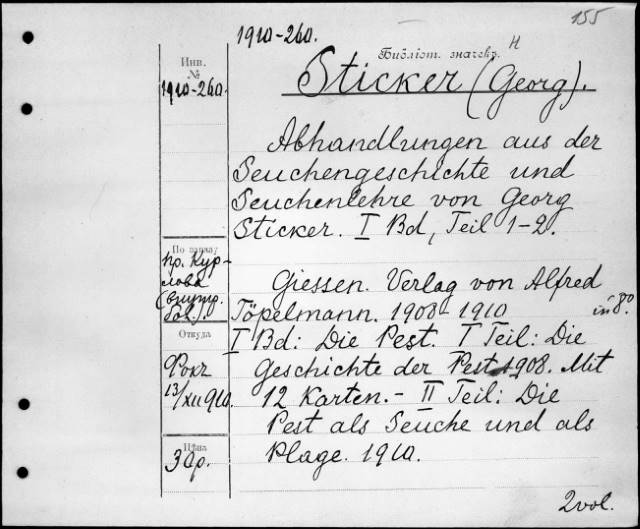 155
1910-260.
Библіот. значекъ. H
Инв.
№
1910-260.
Sticker (Georg).
Abhandlungen aus der
Seuchengeschichte und
Seuchenlehre von Georg
Sticker. I Bd, Teil 1-2.
По заказу
пр. Кур-
лова
(внутр.
бол.)
Giessen. Verlag von Alfred
Töpelmann. 1908-1910 in 8°.
Откуда
Фокъ
13/XII 910.
I Bd: Die Pest. I Teil: Die
Geschichte der Pest. 1908. Mit
12 Karten.- II Teil: Die
Pest als Seuche und als
Plage. 1910.
Цѣна
30р.
2 vol.